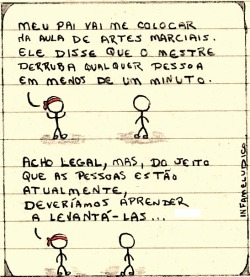 MEU PAI VAI ME COLOCAR
NA AULA DE ARTES MARCIAIS.
ELE DISSE QUE O MESTRE
DERRUBA QUALQUER PESSOA
EM MENOS DE UM MINUTO.
ACHO LEGAL, MAS, DO JEITO
QUE AS PESSOAS ESTÃO
ATUALMENTE,
DEVERÍAMOS APRENDER
A LEVANTÁ-LAS...
INFAMELUDICO